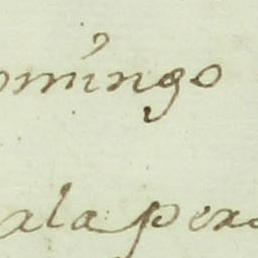 omingo
ala pera